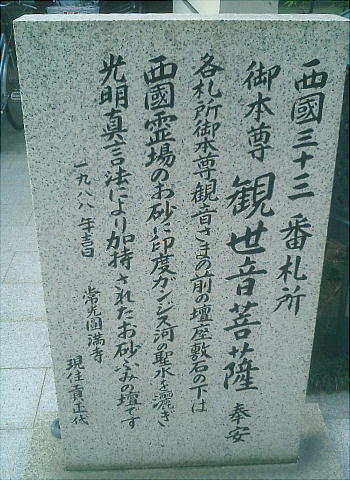 西國三十三番札所
御本尊 観世音菩薩 奉安
各札所御本尊観音さまの前の壇座敷石の下は
西國霊場のお砂に印度ガンジス河の聖水を灑ぎ
光明真言法により加持されたお砂ふみの壇です
一九八八年吉日
常光圓満寺
現住貢正代